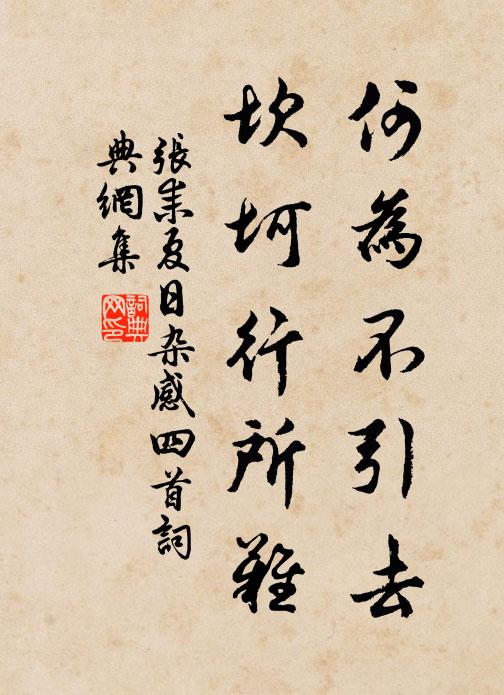 何為不引去
坎坷行所難
張耒夏日杂感四首詞
典網集
詞典
网印